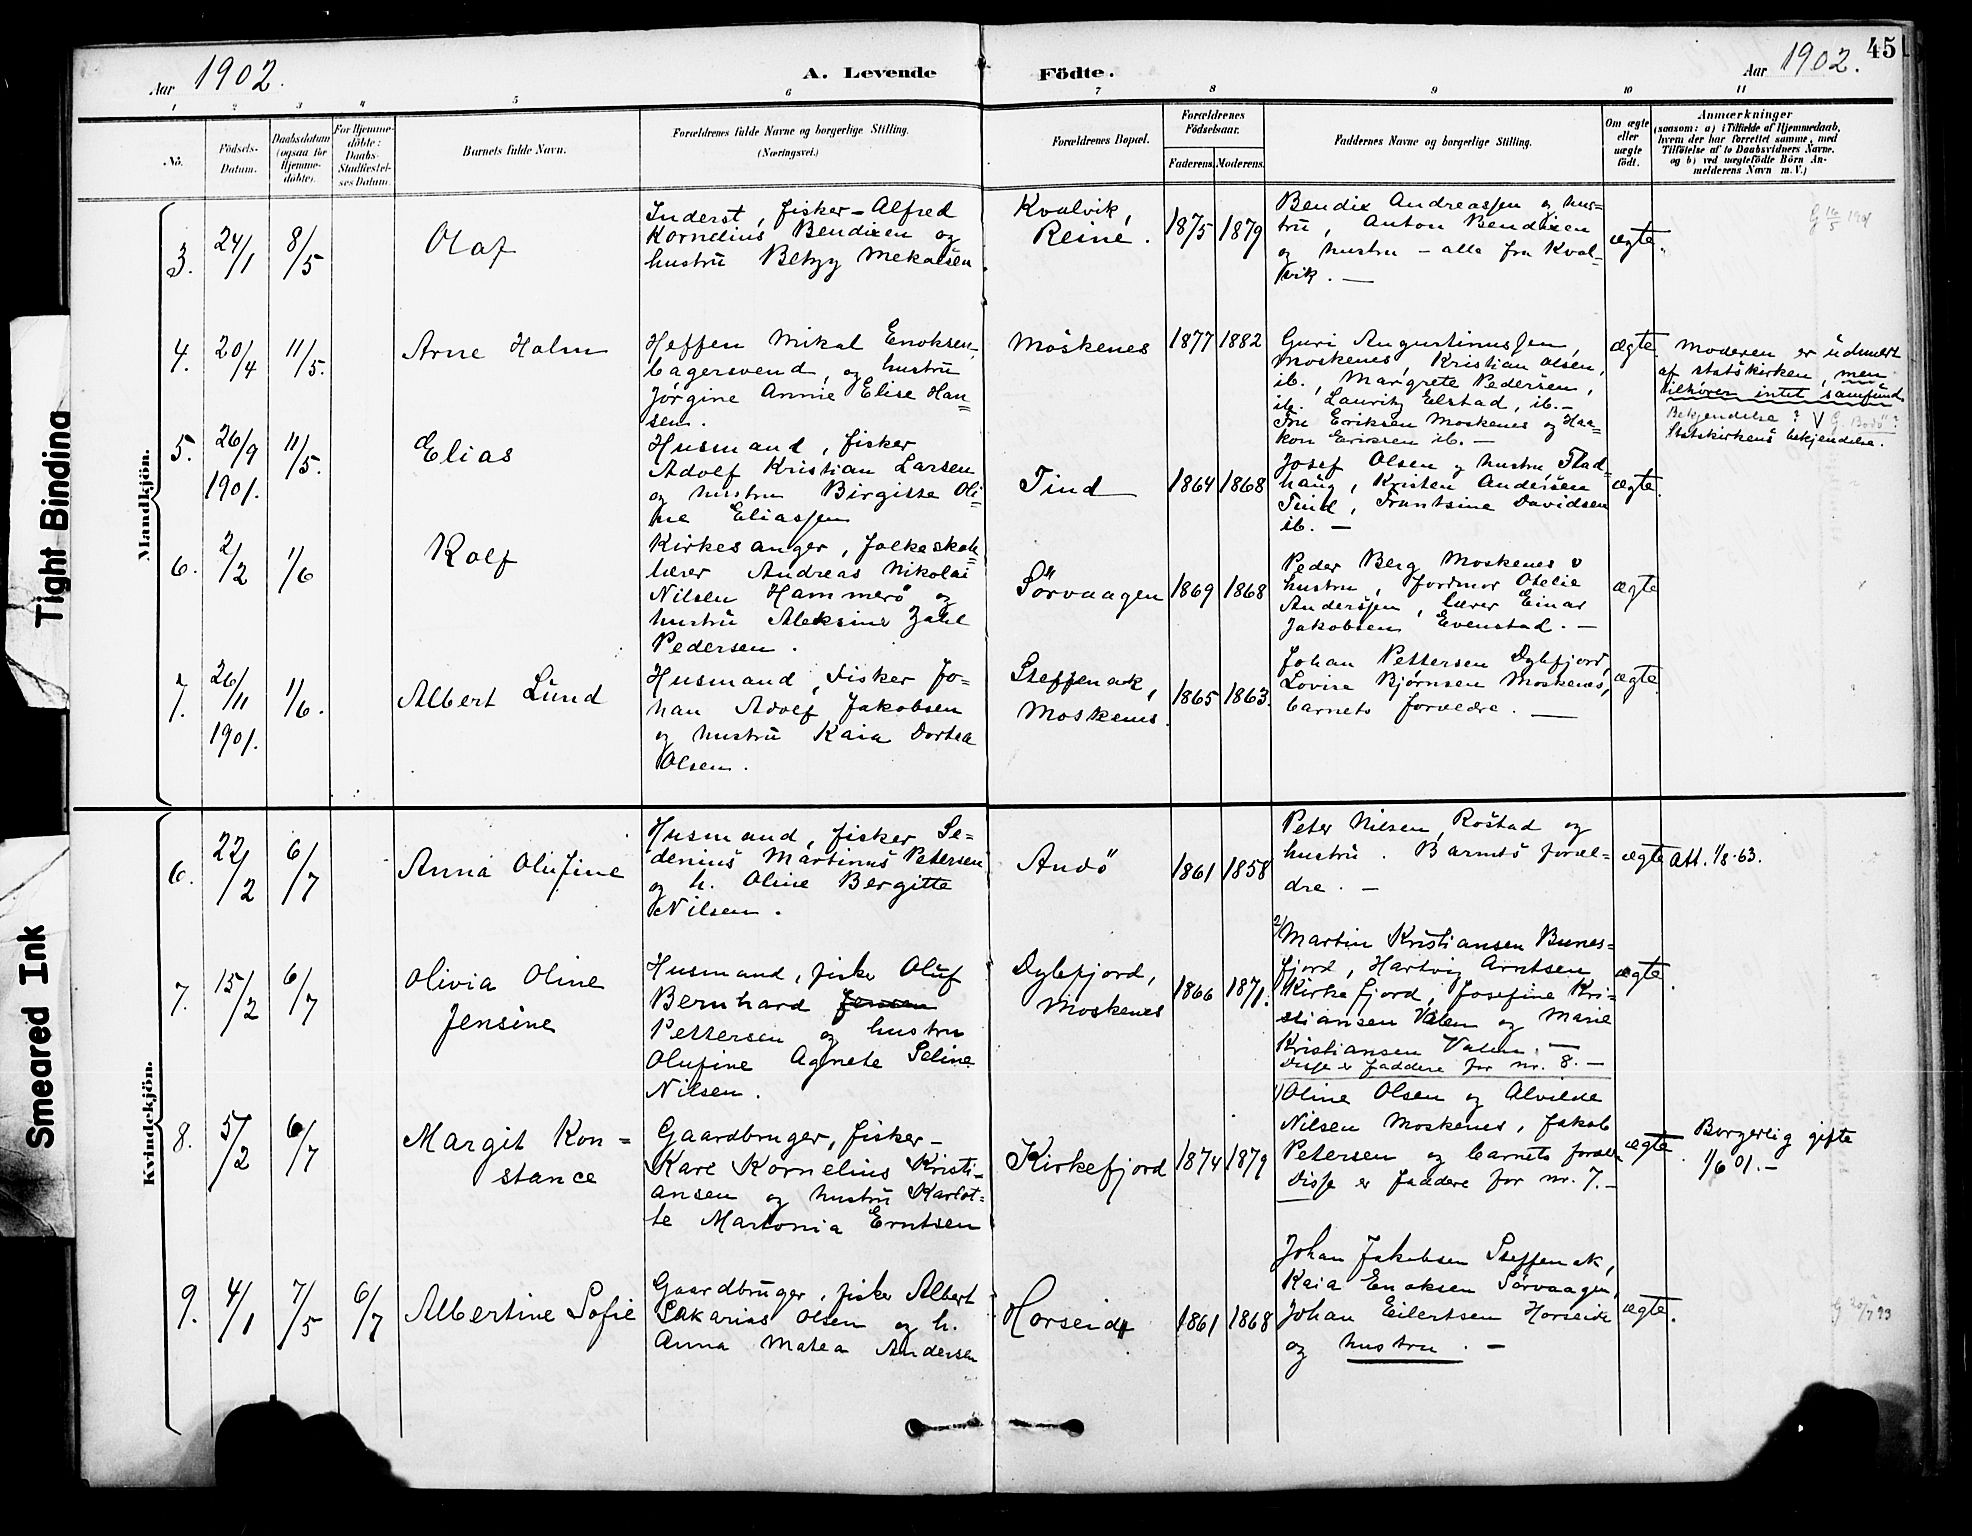 45
Aar 1902.
A. Levende Födte.
Aar 1902.
1 2 3 4 5 6 7 8 9 10 11
No.
Födsels-
Datum.
Daabsdatum
(ogsaa for
Hjemme-
döbte).
For Hjemme-
döbte:
Daabs-
Stadfæstel-
ses Datum.
Barnets fulde Navn.
Forældrenes fulde Navne og borgerlige Stilling.
(Næringsvei.)
Forældrenes Bopæl.
Forældrenes
Födselsaar.
Faderens. Moderens.
Faddernes Navne og borgerlige Stilling.
Om ægte
eller
uægte
födt.
Anmærkninger
(saasom: a) i Tilfælde af Hjemmedaab,
hvem der har forrettet samme, med
Tilföielse af to Daabsvidners Navne.
og b) ved uægtefödte Börn An-
melderens Navn m. V.)
Mandkjön.
3.
24/1
8/5
Olaf
Inderst, fisker - Alfred
Kornelius Bendixen og
hustru Betzy Mekalsen.
Kvalvik,
Reine.
1875
1879
Bendix Andreassen og hus=
tru, Anton Bendixen
og hustru - alle fra Kval=
vik. —
ægte.
4.
20/4
11/5.
Arne Holm
Steffen Mikal Enoksen,
bagersvend, og hustru
Jørgine Annie Elise Han=
sen.
Moskenes
1877
1882
Guri Augustinussen,
Moskenes, Kristian Olsen,
ib., Margrete Pedersen,
ib. Lauritz Elstad, ib. -
Fru Eriksen Moskenes og Haa=
kon Eriksen ib. —
ægte.
Moderen er udmeldt
af statskirken, men
tilhører intet samfund
Bekjendelse? V G. Bodö?
Statskirkens bekjendelse.
5.
26/9
1901.
11/5.
Elias
Husmand, fisker
Adolf Kristian Larsen
og hustru Birgitte Oli=
ne Eliassen
Tind
1864
1868
Josef Olsen og hustru, Flad=
haug, Kristen Andersen
Tind, Frantsine Davidsen
ib. —
ægte.
6.
2/2
1/6
Rolf
Kirkesanger, folkeskole=
lærer Andreas Nikolai
Nilsen Hammerö og
hustru Aleksine Zahl
Pedersen.
Sörvaagen
1869
1868
Peder Berg Moskenes o
hustru, jordmor Otelie
Anderssen, lærer Einar
Jakobsen Evenstad. —
ægte
7.
26/11
1901.
1/6.
Albert Lund
Husmand, Fisker Jo=
han Adolf Jakobsen
og hustru Kaia Dortea
Olsen.
Steffenak,
Moskenes.
1865
1863.
Johan Pettersen Dybfjord,
Lovise Bjørnsen Moskenes,
barnets forældre. —
ægte.
Kvindekjön.
6.
22/2
6/7
Anna Olufine
Husmand, fisker Se=
denius Martinus Petersen
og h. Oline Bergitte
Nilsen.
Andö
1861
1858
Peter Nilsen, Rostad og
hustru. Barnets foræl=
dre. —
ægte
Att. 1/8-63.
7.
15/2
6/7
Olivia Oline
Jensine
Husmand, fisker Oluf
Bernhard Jensen
Pettersen og hustru
Olufine Agnete Seline
Nilsen.
Dybfjord,
Moskenes
1866
1871.
2/ Martin Kristiansen Bunes=
fjord, Hartvig Arntsen
Kirkefjord, Josefine Kri=
stiansen Valen og Marie
Kristiansen Valen. —
Disse er faddere for nr. 8. —
ægte.
8.
5/2
6/7
Margit Kon=
stance
Gaardbruger, fisker -
Karl Kornelius Kristi=
ansen og hustru Karlot=
te Martonia Erntsen
Kirkefjord
1874
1879
1/ Oline Olsen og Alvilde
Nilsen Moskenes, Jakob
Petersen og barnets foræl=
Disse er faddere for nr. 7. —
ægte.
Borgerlig gifte
1/6 01. —
9.
4/1
7/5
6/7
Albertine Sofie
Gaardbruger, fisker Albert
Sakarias Olsen og h.
Anna Matea Andersen
Horseid
1861
1868
Johan Jakobsen Steffenak,
Kaia Enoksen Sörvaagen,
Johan Eilertsen Horseid
og hustru. —
ægte.
G 20/7 93
Tight Binding
Smeared Ink